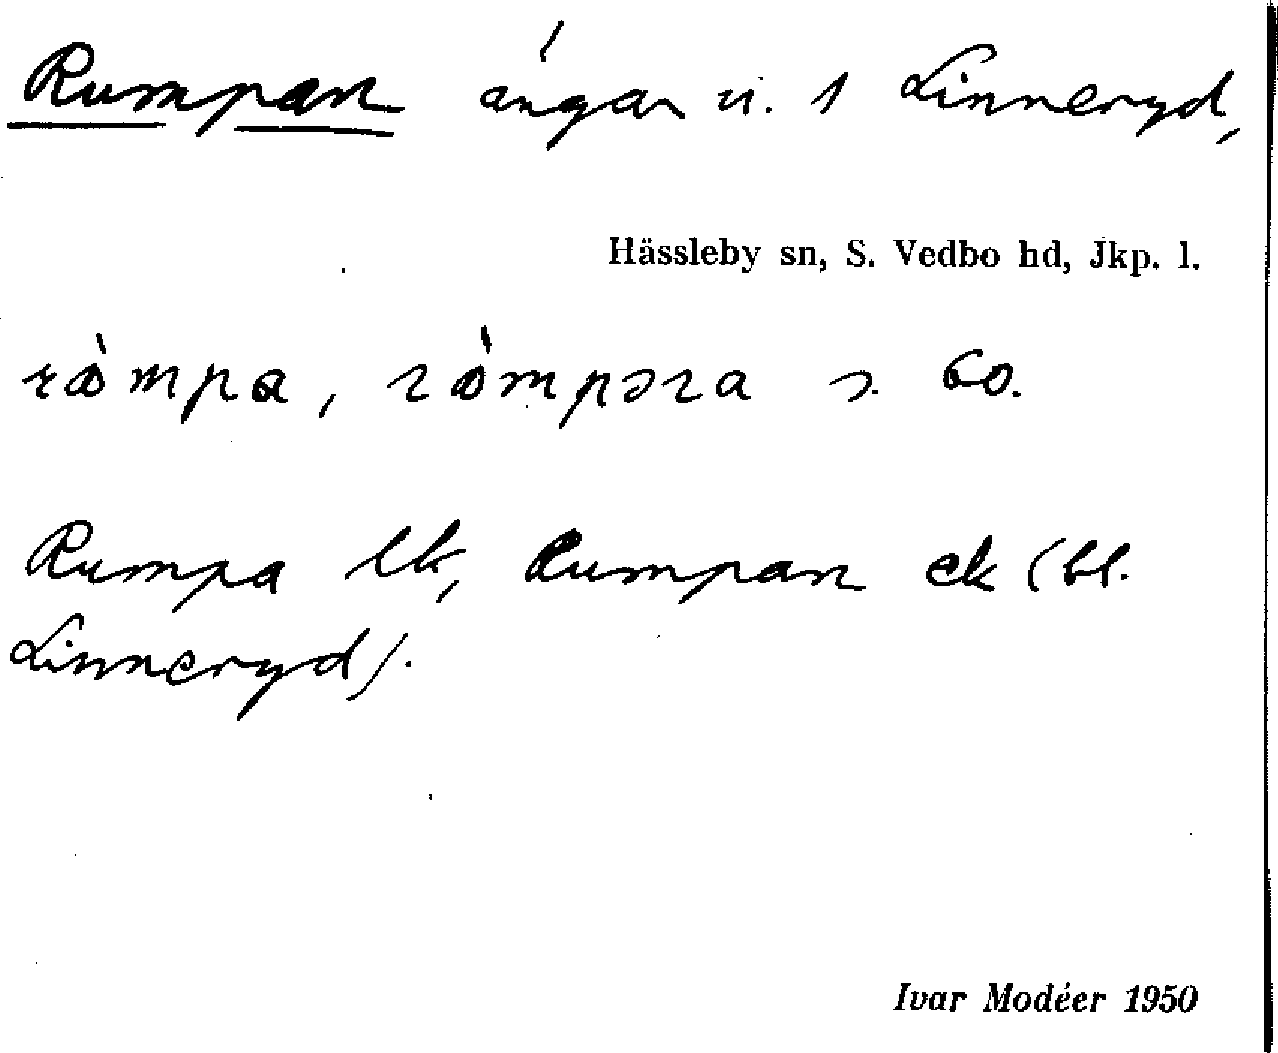 Rumpan ängar u. 1 Linneryd,
Hässleby sn, S. Vedbo hd, Jkp. l.
ròmpa, ròmpəra s. 60.
Rumpa lk, Rumpan ek (bl.
Linneryd).
Ivar Modéer 1950